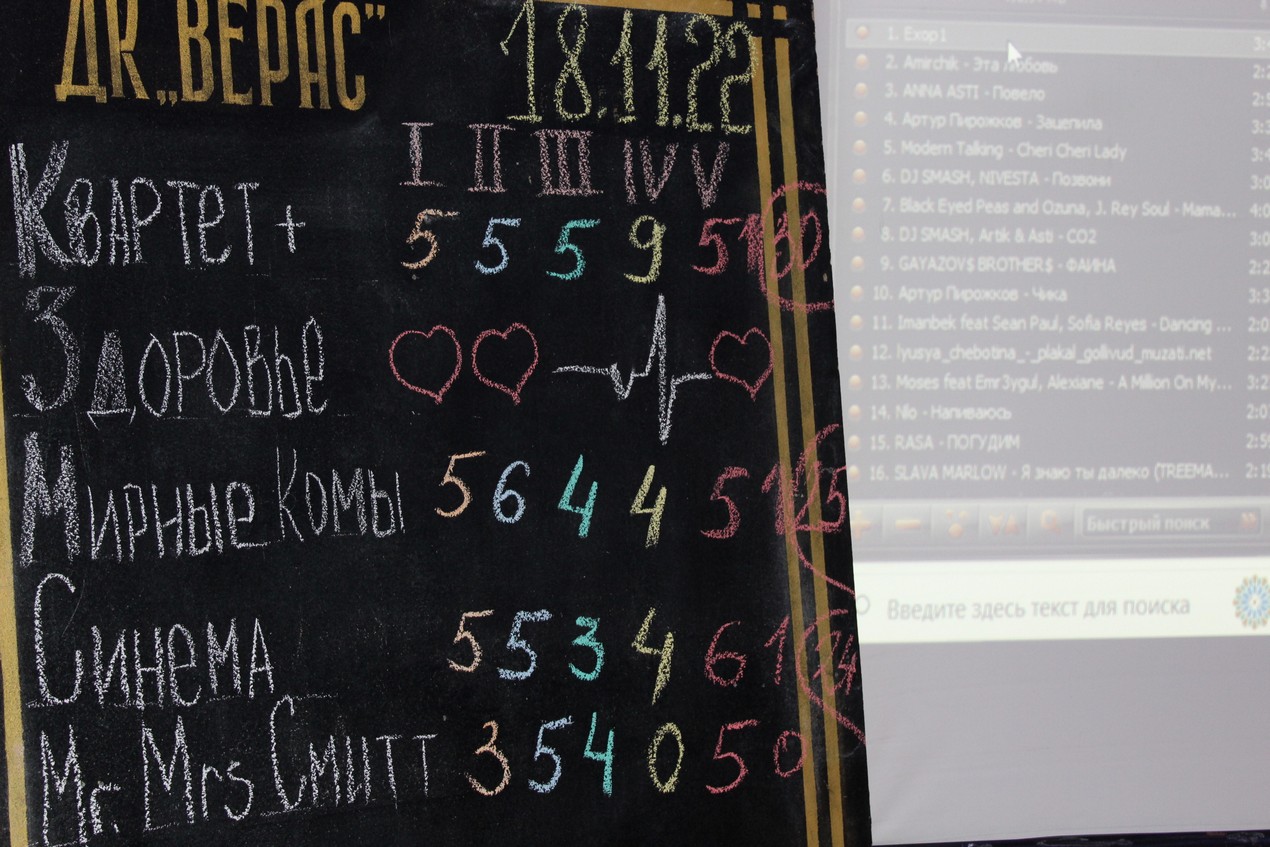 ДК „ВЕРАС”
18.11.22
I II III IV V
Квартет + 5 5 5 9 5 1 30
Здоровье
Мирные Комы 5 6 4 4 5 1 25
Синема 5 5 3 4 6 1 24
Mr. Mrs Смитт 3 5 4 0 5 0
1. Exop1
2. Amirchik - Эта Любовь
3. ANNA ASTI - Повело
4. Артур Пирожков - Зацепила
5. Modern Talking - Cheri Cheri Lady
6. DJ SMASH, NIVESTA - Позвони
7. Black Eyed Peas and Ozuna, J. Rey Soul - Mama...
8. DJ SMASH, Artik & Asti - CO2
9. GAYAZOV$ BROTHER$ - ФАИНА
10. Артур Пирожков - Чика
11. Imanbek feat Sean Paul, Sofia Reyes - Dancing ...
12. lyusya_chebotina_-_plakal_gollivud_muzati.net
13. Moses feat Emr3ygul, Alexiane - A Million On My...
14. Nlo - Напиваюсь
15. RASA - ПОГУДИМ
16. SLAVA MARLOW - Я знаю ты далеко (TREEMA...
Быстрый поиск
Введите здесь текст для поиска